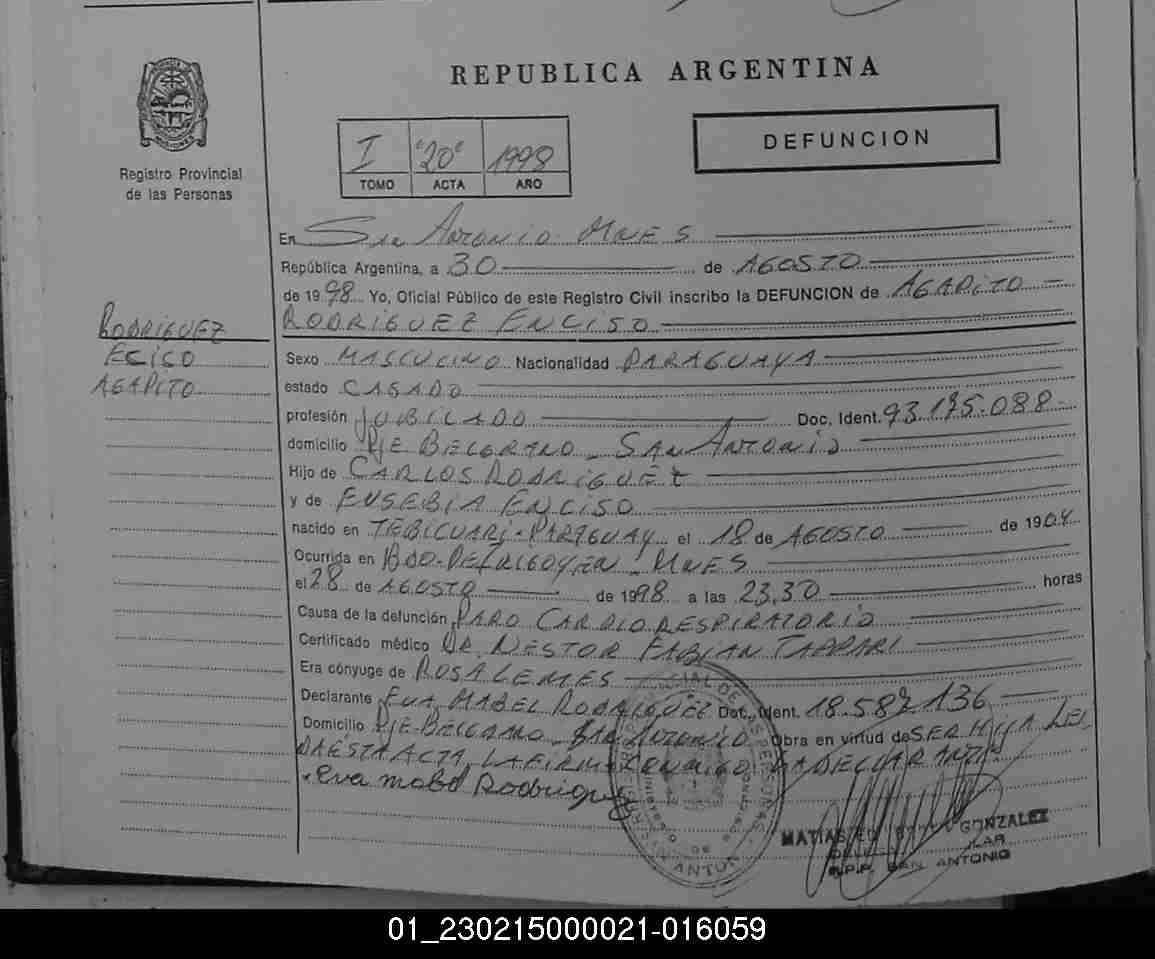 REPUBLICA ARGENTINA
I "20" 1998
TOMO ACTA AÑO
DEFUNCION
Registro Provincial
de las Personas
En San Antonio Mnes
República Argentina, a 30 de AGOSTO
de 1998 Yo, Oficial Público de este Registro Civil inscribo la DEFUNCION de AGAPITO
RODRIGUEZ ENCISO
RODRIGUEZ
ECISO
AGAPITO
Sexo MASCULINO Nacionalidad PARAGUAYA
estado CASADO
profesión JUBILADO Doc. Ident. 93.135.088
domicilio PJE BELGRANO - SAN ANTONIO
Hijo de CARLOS RODRIGUEZ
y de EUSEBIA ENCISO
nacido en TEBICUARI - PARAGUAY el 18 de AGOSTO de 1904
Ocurrida en BDO-DE IRIGOYEN - MNES
el 28 de AGOSTO de 1998 a las 23,30 horas
Causa de la defunción PARO CARDIO RESPIRATORIO
Certificado médico DR. NESTOR FABIAN
Era cónyuge de ROSA LEMES
Declarante EVA MABEL RODRIGUEZ Doc. Ident. 18.587.136
Domicilio PJE-BELGRANO - SAN ANTONIO Obra en virtud de SER HIJA LEI
DA ESTA ACTA LA FIRMA CONMIGO LA DECLARANTE
Eva mabel Rodriguez
MATIAS GONZALEZ
R.P.P. SAN ANTONIO
01_230215000021-016059